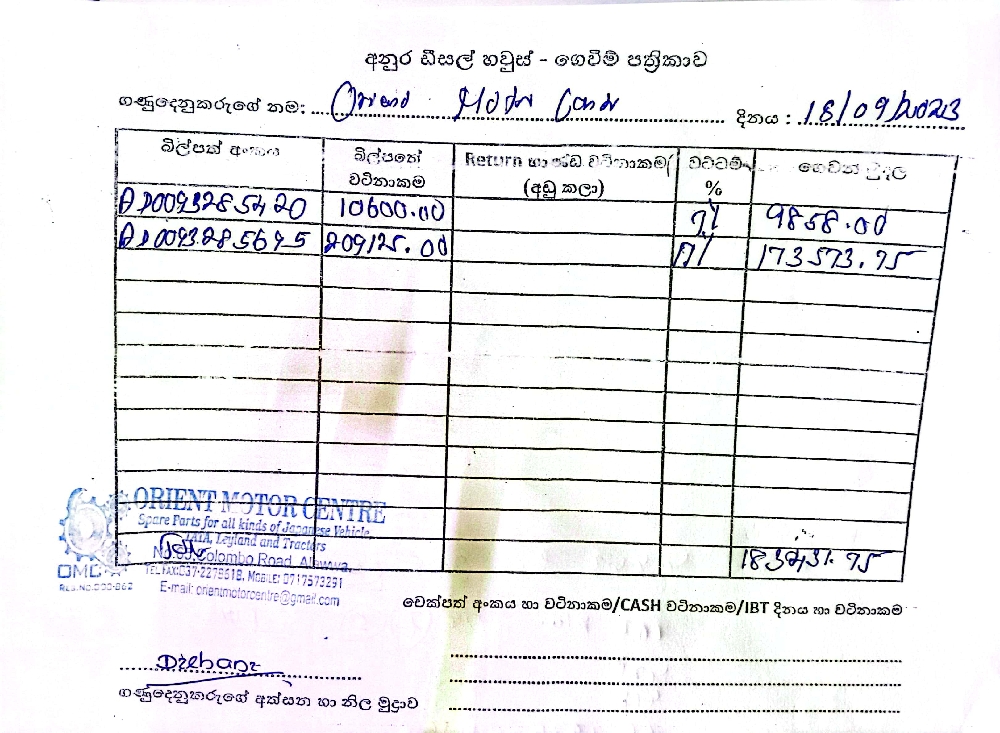 අනුර ඩීසල් හවුස් - ගෙවීම් පත්‍රිකාව
ගණුදෙනුකරුගේ නම: Orient Motor Centre දිනය : 18/09/2023
බිල්පත් අංකය බිල්පතේ වටිනාකම Return හා වටිනාකම/ (අඩු කලා) වට්ටම් % ගෙවන මුදල
AD0093285420 10600.00 7% 9858.00
AD0093285695 209125.00 17% 173573.75
183431.75
ORIENT MOTOR CENTRE
Spare Parts for all kinds of Japanese Vehicle,
TATA, Leyland and Tractors
Colombo Road, Alawwa.
MOBILE: 0717573251
OMC
E-mail: orientmotorcentre@gmail.com
චෙක්පත් අංකය හා වටිනාකම/CASH වටිනාකම/IBT දිනය හා වටිනාකම
ගණුදෙනුකරුගේ අත්සන හා නිල මුද්‍රාව